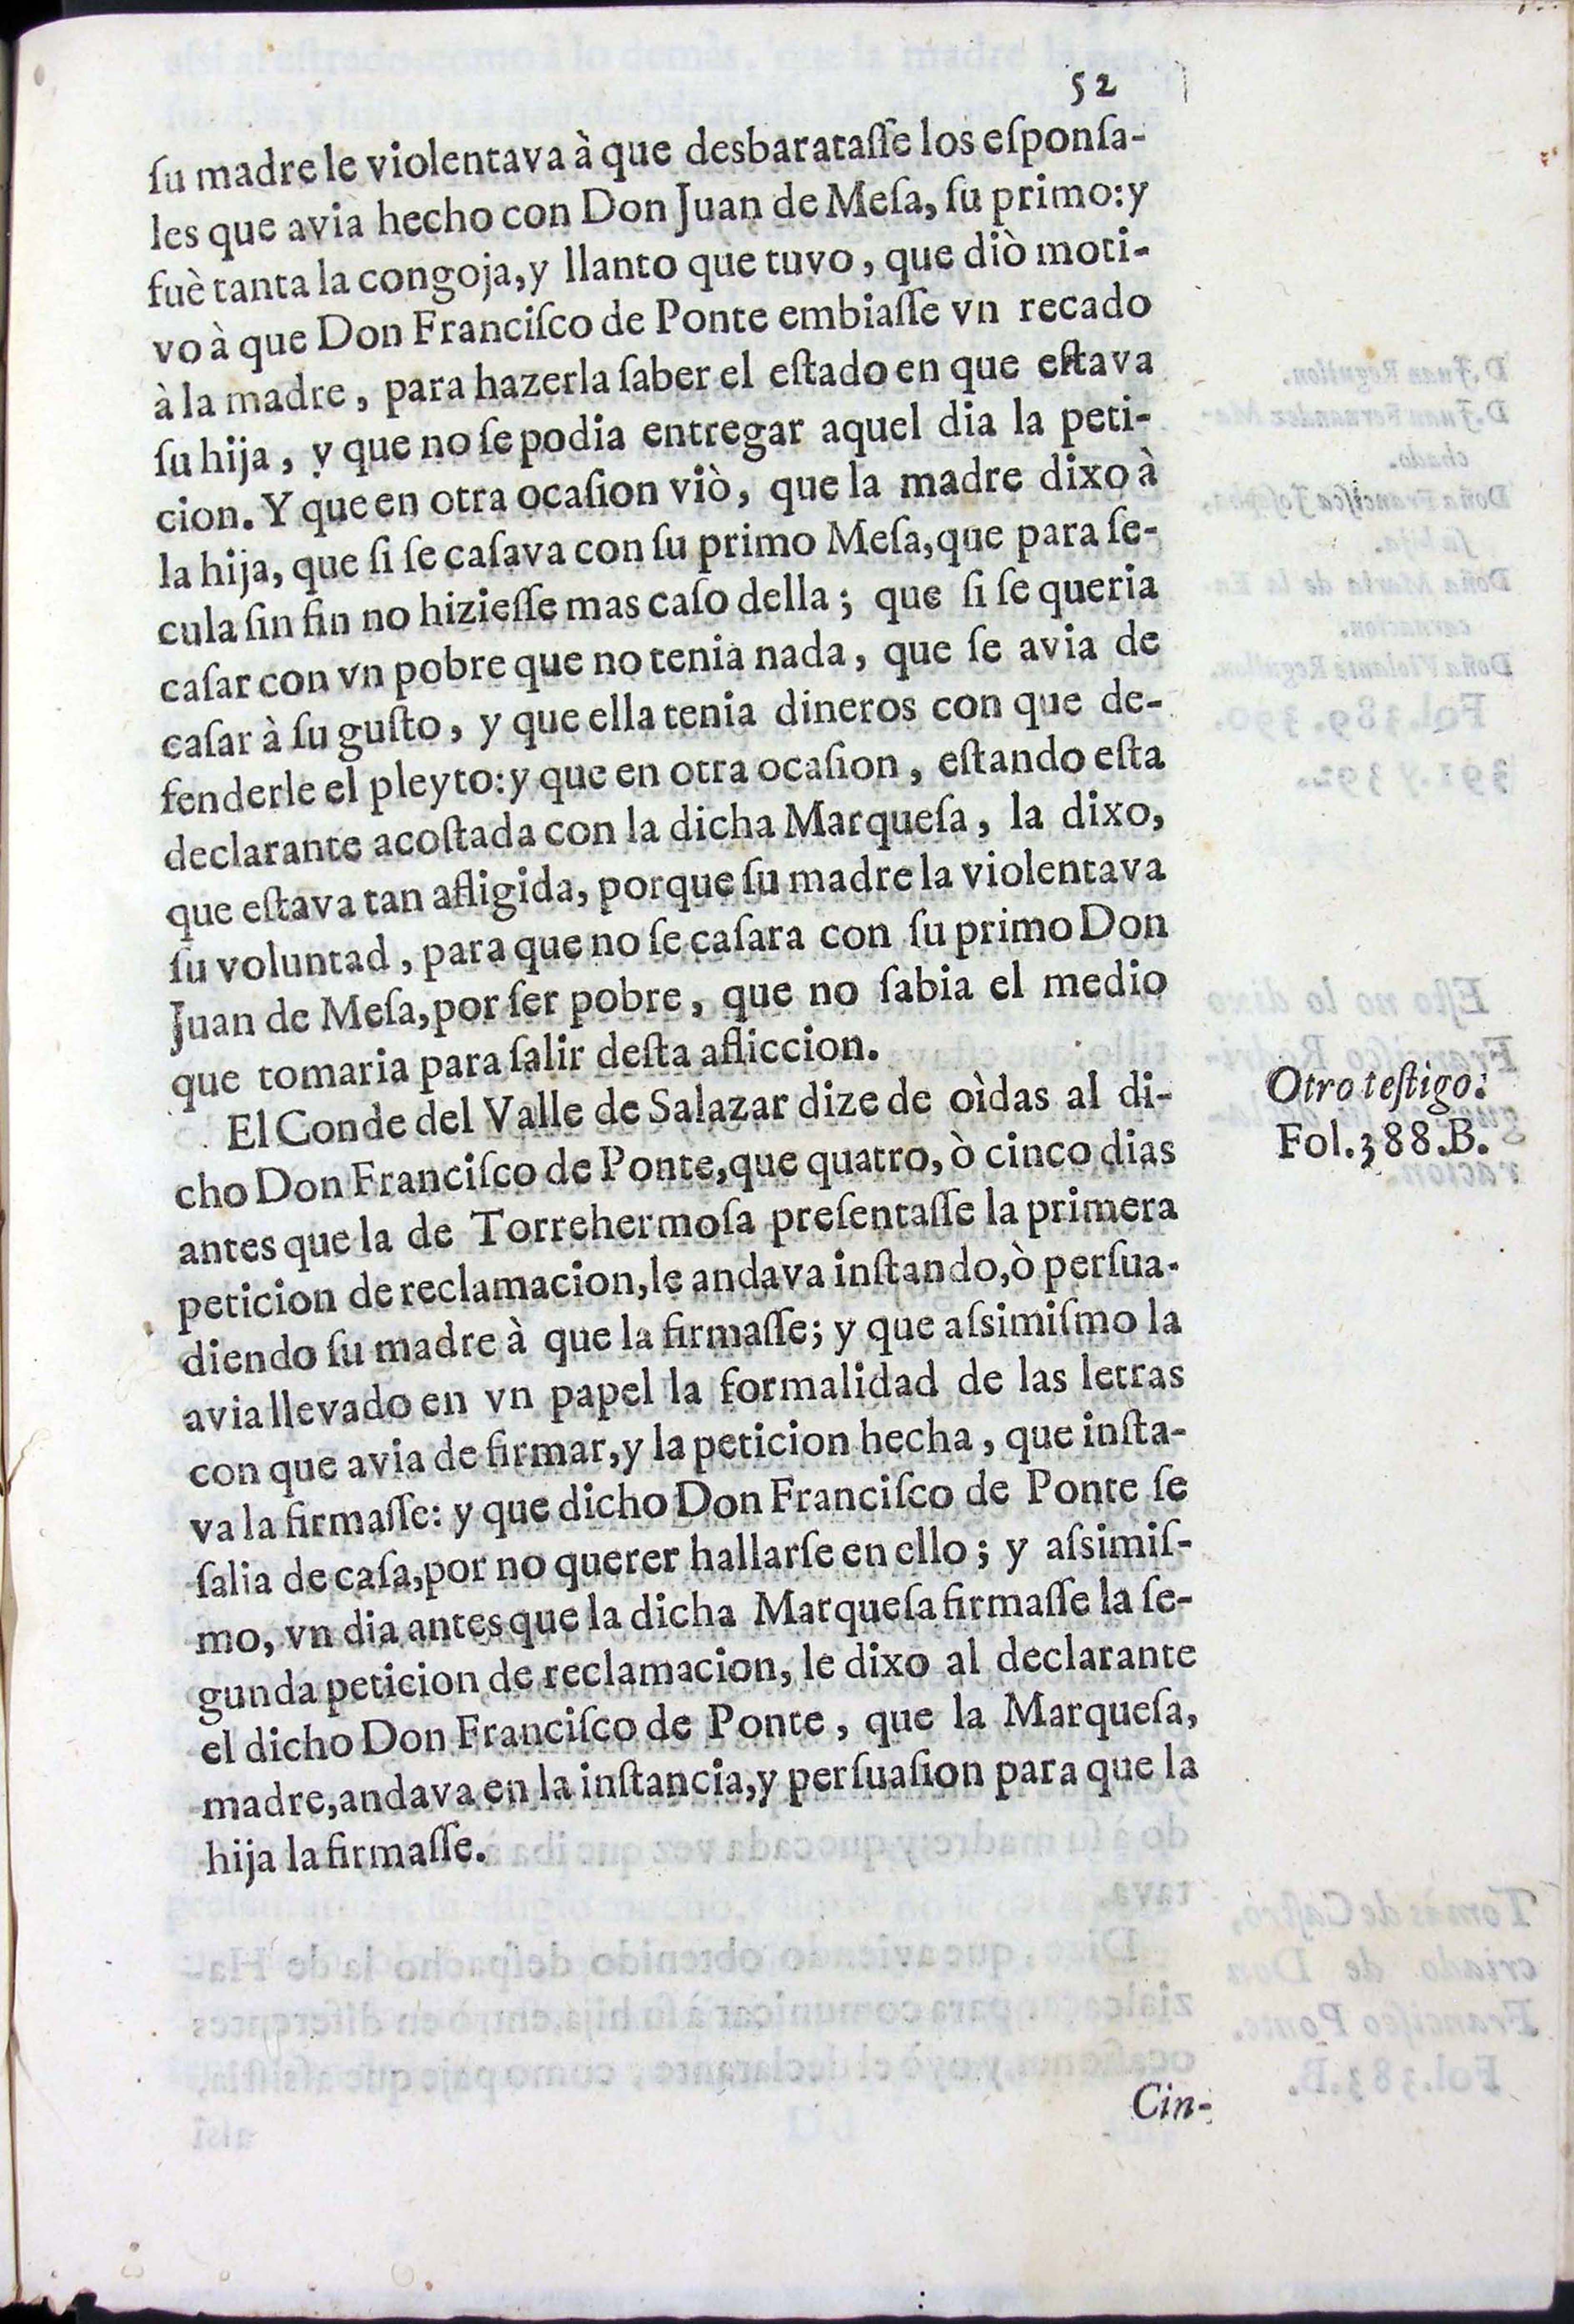 52
ſu madre le violentava à que desbarataſſe los eſponſa-
les que avia hecho con Don Juan de Meſa, ſu primo: y
fuè tanta la congoja, y llanto que tuvo, que diò moti-
vo à que Don Franciſco de Ponte embiaſſe vn recado
à la madre, para hazerla ſaber el eſtado en que eſtava
ſu hija, y que no ſe podia entregar aquel dia la peti-
cion. Y que en otra ocaſion viò, que la madre dixo à
la hija, que ſi ſe caſava con ſu primo Meſa, que para ſe-
cula ſin fin no hizieſſe mas caſo della; que ſi ſe queria
caſar con vn pobre que no tenia nada, que ſe avia de
caſar à ſu guſto, y que ella tenia dineros con que de-
fenderle el pleyto: y que en otra ocaſion, eſtando eſta
declarante acoſtada con la dicha Marqueſa, la dixo,
que eſtava tan afligida, porque ſu madre la violentava
ſu voluntad, para que no ſe caſara con ſu primo Don
Juan de Meſa, por ſer pobre, que no ſabia el medio
que tomaria para ſalir deſta afliccion.
El Conde del Valle de Salazar dize de oìdas al di-
cho Don Franciſco de Ponte, que quatro, ò cinco dias
antes que la de Torrehermoſa preſentaſſe la primera
peticion de reclamacion, le andava inſtando, ò perſua-
diendo ſu madre à que la firmaſſe; y que aſsimiſmo la
avia llevado en vn papel la formalidad de las letras
con que avia de firmar, y la peticion hecha, que inſta-
va la firmaſſe: y que dicho Don Franciſco de Ponte ſe
ſalia de caſa, por no querer hallarſe en ello; y aſsimiſ-
mo, vn dia antes que la dicha Marqueſa firmaſſe la ſe-
gunda peticion de reclamacion, le dixo al declarante
el dicho Don Franciſco de Ponte, que la Marqueſa,
madre, andava en la inſtancia, y perſuaſion para que la
hija la firmaſſe.
Otro teſtigo.
Fol. 388. B.
Cin-